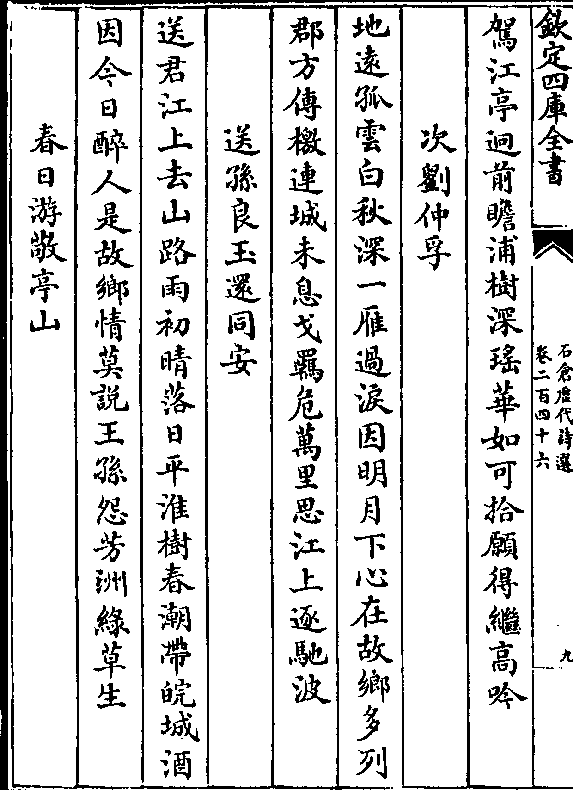 欽定四庫全書
石倉歷代詩選
卷二百四十六
九
駕江亭迥前瞻浦樹深瑤華如可拾願得繼高吟
次劉仲孚
地遠孤雲白秋深一雁過淚因明月下心在故鄉多列
郡方傳檄連城未息戈羈危萬里思江上逐馳波
送孫良玉還同安
送君江上去山路雨初晴落日平淮樹春潮帶皖城酒
因今日醉人是故鄉情莫説王孫怨芳洲綠草生
春日游敬亭山